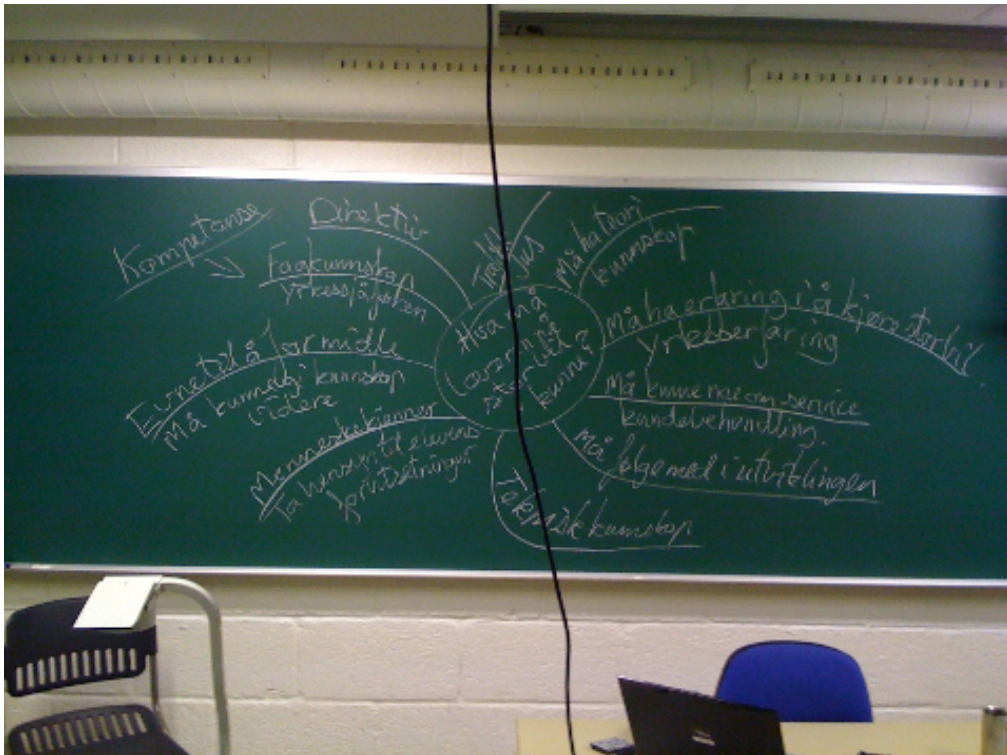 Kompetanse
Direktiv
Fagkunnskap
Evnetil å formidle
Må kunne gi kunnskap
videre
Menneskekjenner
Ta hensyn til elevens
forutsetninger
Hva må
kunne?
jus
Må ha teori
kunnskap
Må ha erfaring i å kjøre storbil.
Yrkeserfaring
Må kunne noe om service
kundebehandling.
Må følge med i utviklingen
Teknisk kunnskap